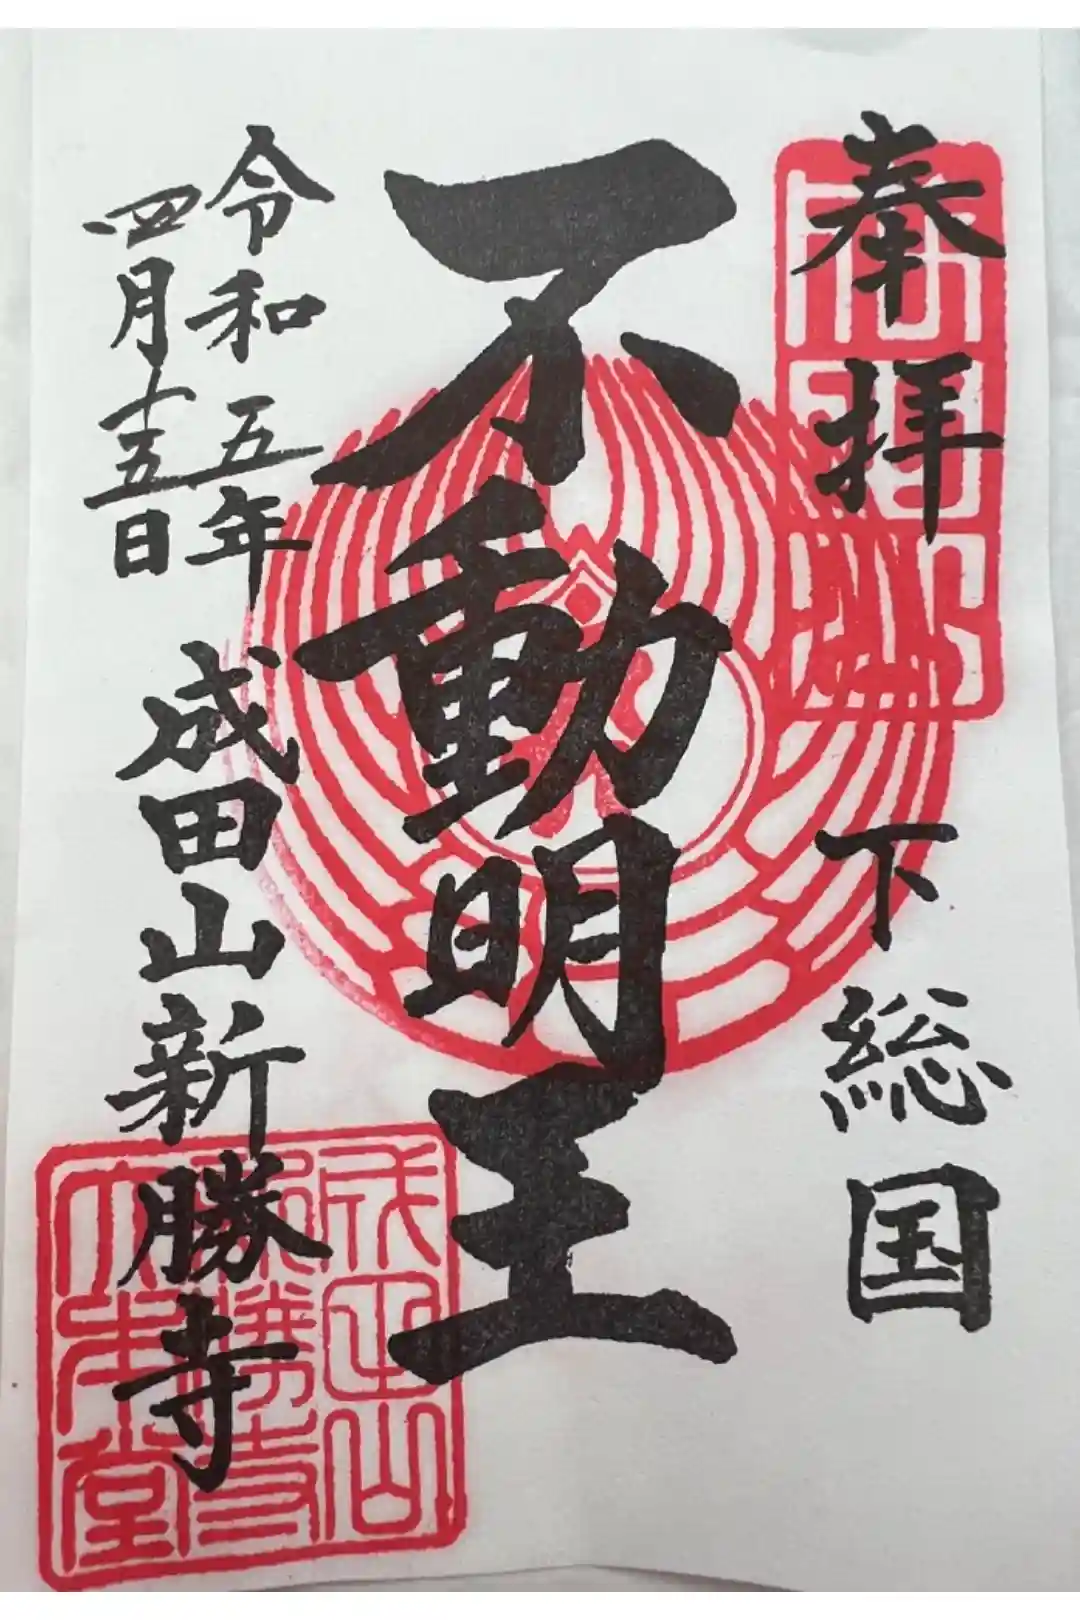 奉拝
下総国
不動明王
令和五年
四月十五日
成田山新勝寺
成田山
新勝寺
大本堂